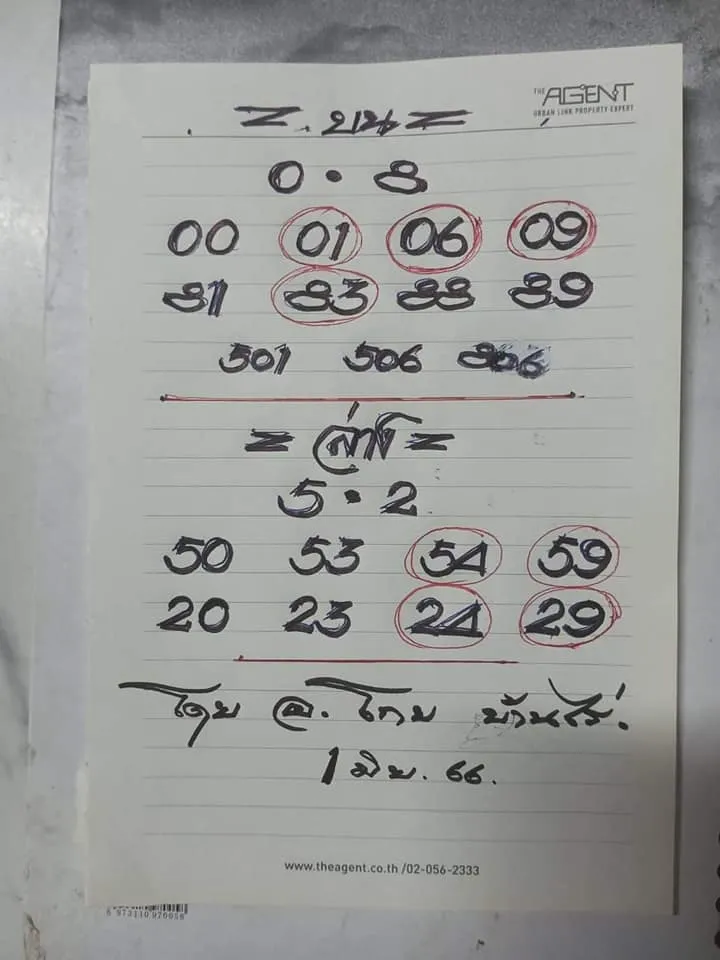 THE AGENT
URBAN LINK PROPERTY EXPERT
= บน =
0 • 8
00 01 06 09
81 83 88 89
501 506 806
= ล่าง =
5 • 2
50 53 54 59
20 23 24 29
โดย อ. โกย บ้านไร่.
1 มิย. 66.
www.theagent.co.th /02-056-2333